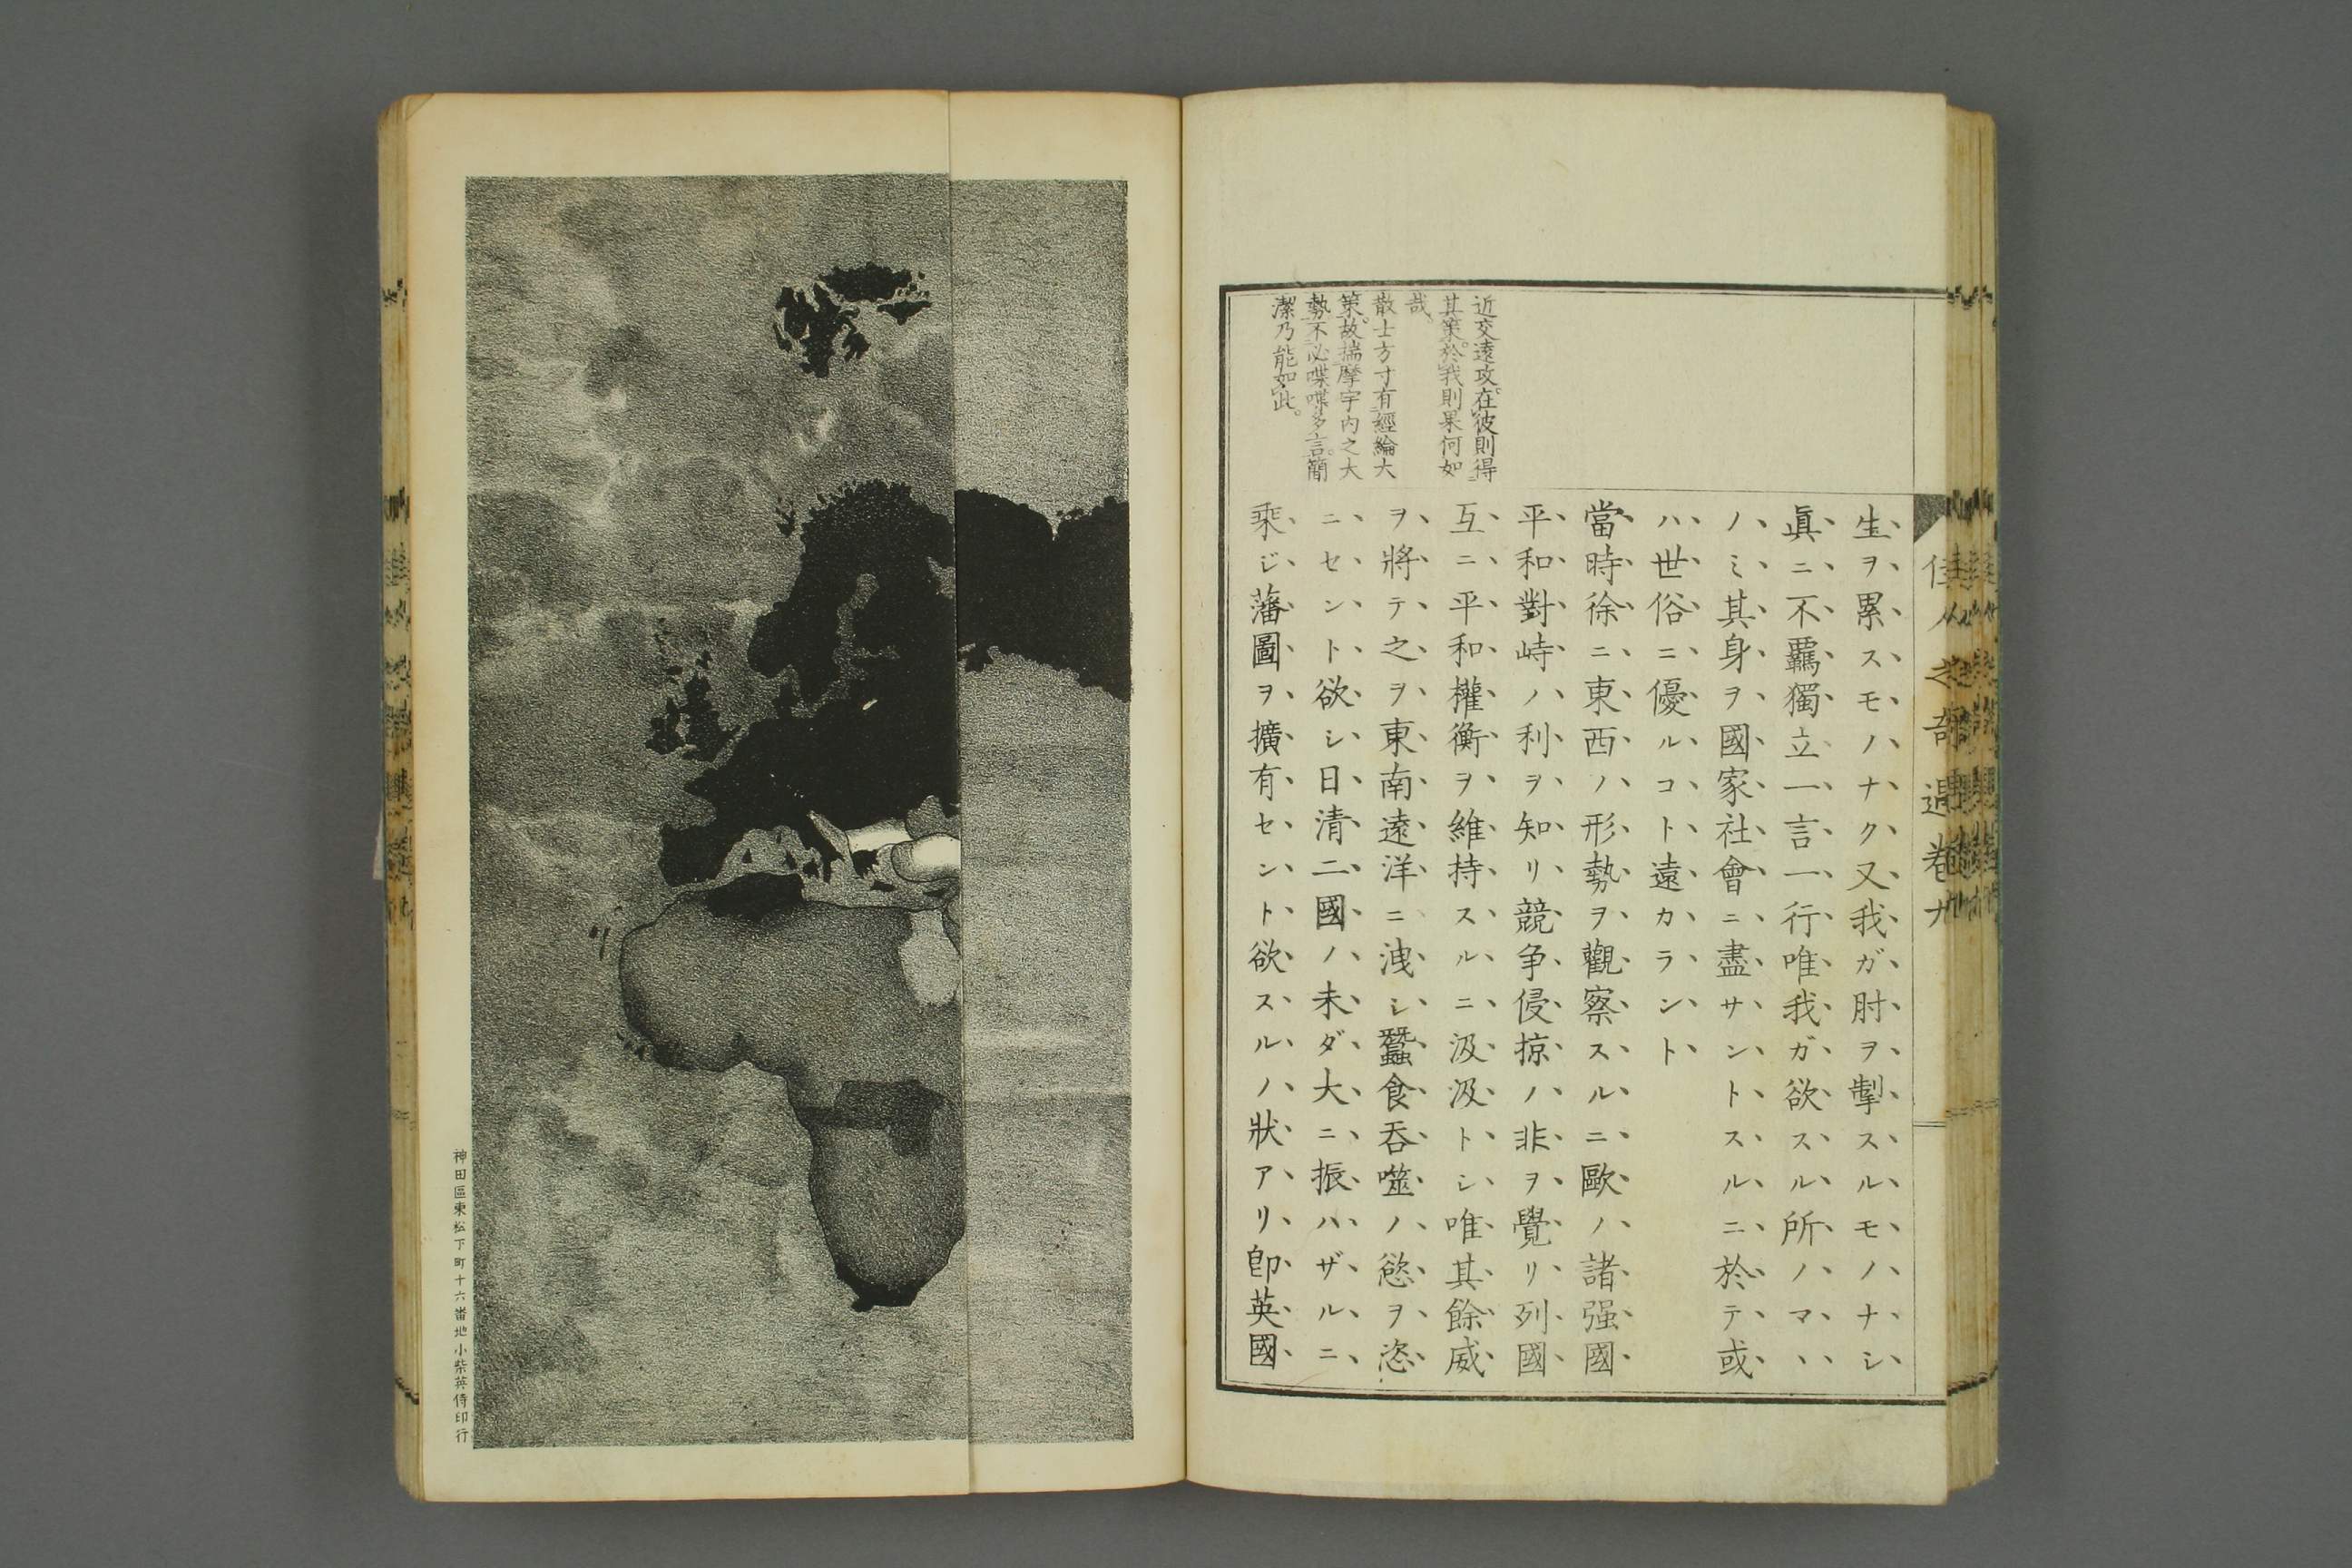 佳人之奇遇卷九
生ヲ累スモノナク又我ガ肘ヲ掣スルモノナシ
眞ニ不羈獨立一言一行唯我ガ欲スル所ノマヽ
ノミ其身ヲ國家社會ニ盡サントスルニ於テ或
ハ世俗ニ優ルコト遠カラント
當時徐ニ東西ノ形勢ヲ觀察スルニ歐ノ諸强國
平和對峙ノ利ヲ知リ競争侵掠ノ非ヲ覺リ列國
互ニ平和權衡ヲ維持スルニ汲汲トシ唯其餘威
ヲ將テ之ヲ東南遠洋ニ洩シ蠶食吞噬ノ慾ヲ恣
ニセント欲シ日清二國ノ未ダ大ニ振ハザルニ
乘ジ藩圖ヲ擴有セント欲スルノ狀アリ卽英國
近交遠攻。在彼則得
其策。於我則果何如
哉。
散士方寸有經綸大
策。故揣摩宇内之大
勢。不必喋喋多言。簡
潔乃能如此。
神田區東松下町十六番地小柴英侍印行